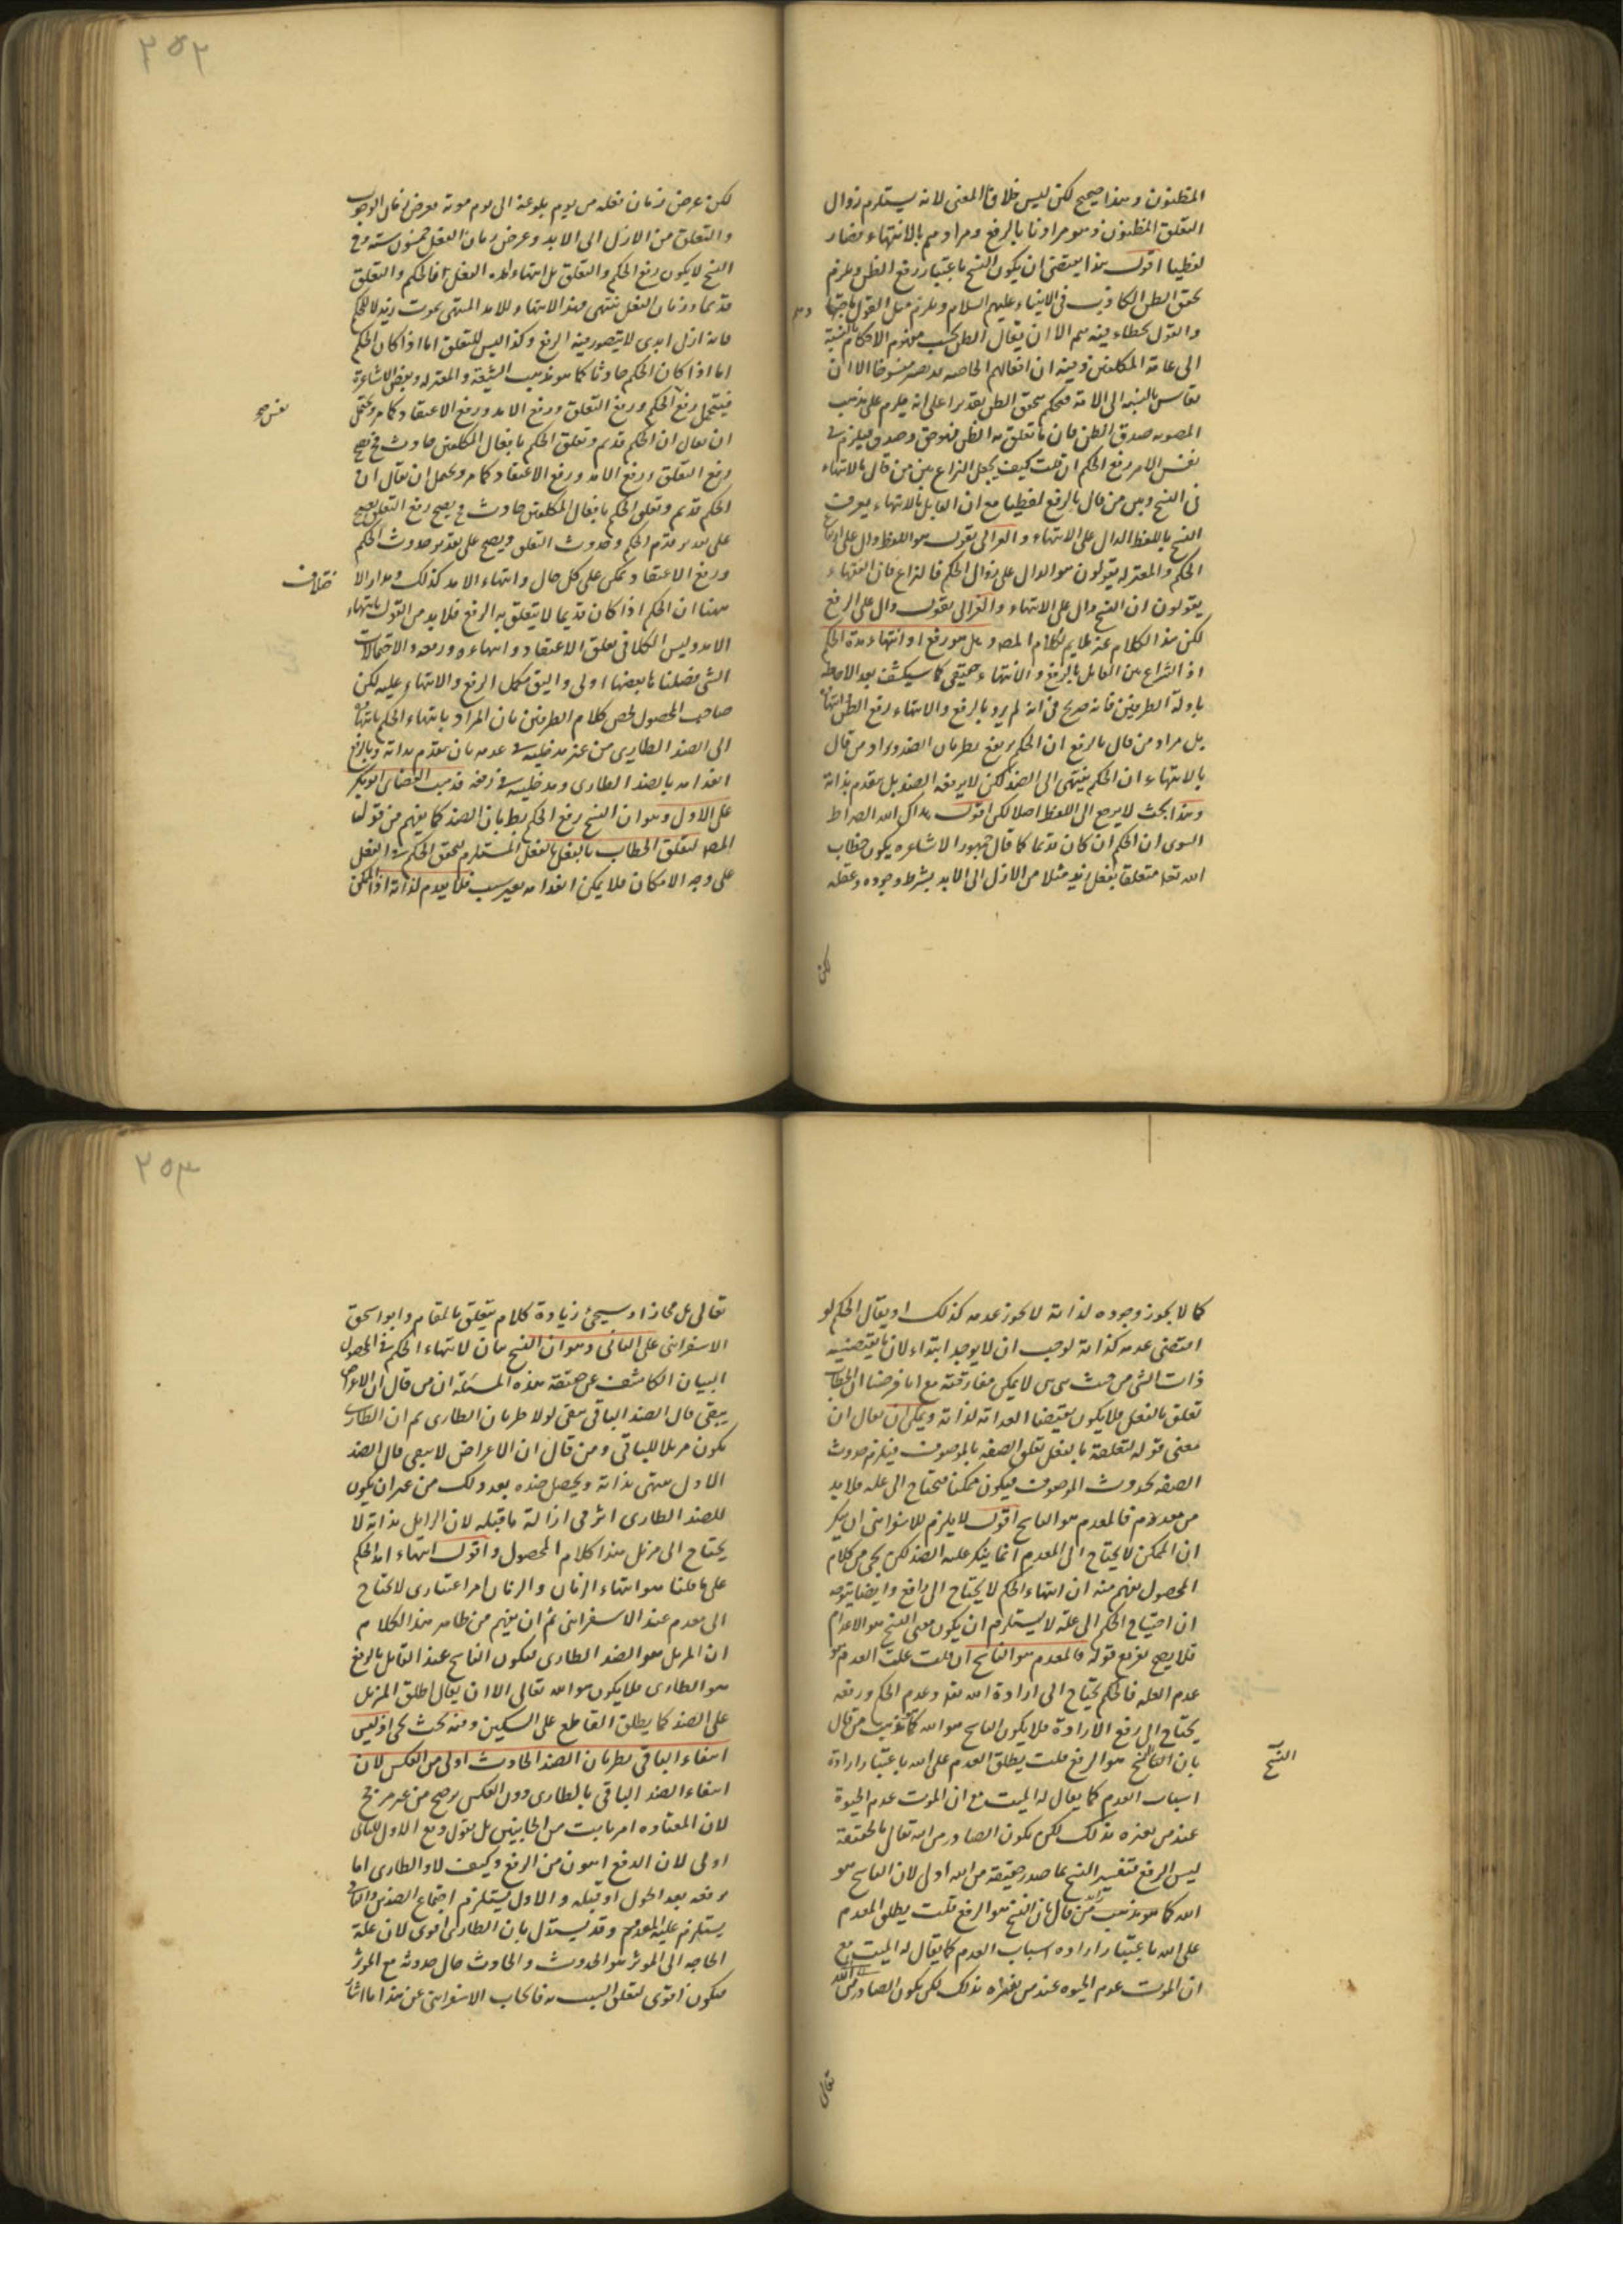 المظنون وهذا صحيح لكن ليس خلافا المعنى لانه يستلزم زوال
التعلق المظنون وهو مرادنا بالرفع ومرادهم بالانتهاء فصار
لفظيا اقول هذا يقتضى ان يكون النسخ باعتبار رفع الظن ويلزم
تحقق الظن الكاذب فى الانبياء عليهم السلام ويلزم مثل القول
والقول بخطاء فيه منهم الا ان يقال الظن بحسب مفهوم الاحكام بالنسبة
الى عامة المكلفين وفيه ان افعالهم الخاصه قد تصير منسوخا الا ان
يقاس بالنسبه الى الامة فيحكم بتحقق الظن تقديرا على انه يلزم على مذهب
المصوبه صدق الظن فان ما تعلق به الظن فهو حق وصدق فيلزم فى
نفس الامر رفع الحكم ان قلت كيف يجعل النزاع بين من قال بالانتهاء
فى النسخ وبين من قال بالرفع لفظيا مع ان القايل بالانتهاء يعرف
النسخ باللفظ الدال على الانتهاء والغزالى يقول هو اللفظ دال على ارتفاع
الحكم والمعتزله يقولون هو الدال على زوال الحكم فالنزاع فان الفقهاء
يقولون ان النسخ دال على الانتهاء والغزالى يقول دال على الرفع
لكن هذا الكلام غير ملايم لكلام المص وهل هو رفع او انتهاء مدة الحكم
اذ النزاع بين القايل بالرفع والانتهاء حقيقى كما سيكشف بعد الاحاطه
بادلة الطرفين فانه صريح فى انه لم يرد بالرفع والانتهاء رفع الظن انتهائه
بل مراد من قال بالرفع ان الحكم يرتفع بطريان الضد ومراد من قال
بالانتهاء ان الحكم ينتهى الى الضد لكن لا يرفعه الضد بل ينعدم بذاته
وهذا بحث لا يرجع الى اللفظ اصلا لكن اقول هداك الله الصراط
السوى ان الحكم ان كان قديما كما قال جمهور الاشاعره يكون خطاب
الله تعا متعلقا بفعل زيد مثلا من الازل الى الابد بشرط وجوده وعقله
لكن
٢٥٢
لكن عرض زمان فعله من يوم بلوغه الى يوم موته معرض زمان الوجوب
والتعلق من الازل الى الابد وعرض زمان الفعل خمسون سنه وفى
النسخ لا يكون رفع الحكم والتعلق بل انتهاء لمدة الفعل فالحكم والتعلق
قديما وزمان الفعل ينتهى فهذا الانتهاء للامد المنتهى بموت زيد لا للحكم
فانه ازلى ابدى لا يتصور فيه الرفع وكذا ليس للتعلق اما اذا كان الحكم
اما اذا كان الحكم حادثا كما هو مذهب الشيعة والمعتزله وبعض الاشاعرة
فيتحمل رفع الحكم ورفع التعلق ورفع الامد ورفع الاعتقاد كما مر ويحتمل
ان يقال ان الحكم قديم وتعلق الحكم بافعال المكلفين حادث فح يصح
رفع التعلق ورفع الامد ورفع الاعتقاد كما مر ويحتمل ان يقال ان
الحكم قديم وتعلق الحكم بافعال المكلفين حادث فح يصح رفع التعلق يصح
على تقدير قدم الحكم وحدوث التعلق ويصح على تقدير حدوث الحكم
ورفع الاعتقاد يمكن على كل حال وانتهاء الامد كذلك ومدار الا
ختلاف
ههنا ان الحكم اذا كان قديما لا يتعلق به الرفع فلابد من القول بانتهاء
الامد وليس الكلام فى تعلق الاعتقاد وانتهاءه ورفعه والاحتمالات
التى فصلنا بابعضها اولى واليق بمحل الرفع والانتهاء عليه لكن
صاحب المحصول لخص كلام الطرفين بان المراد بانتهاء الحكم بانتهائه
الى الضد الطارى من غير مدخلية فى عدمه بان ينعدم بذاته وبالرفع
انعدامه بالضد الطارى ومدخليته فى رفعه فذهب القاضى ابو بكر
على الاول وهو ان النسخ رفع الحكم بطريان الضد كما يفهم من قوله
المص لتعلق الخطاب بالفعل بالفعل المستلزم لتحقق الحكم فى الفعل
على وجه الامكان فلا يمكن انعدامه بغير سبب فلا يعدم لذاته اذ الممكن
كما لا يجوز وجوده لذاته لا يجوز عدمه كذلك او يقال الحكم لو
اقتضى عدمه كذاته لوجب ان لا يوجد ابتداء لان ما يقتضيه
ذات الشى من حيث هى هى لا يمكن مفارقته مع انا فرضنا ان الخطاب
تعلق بالفعل فلا يكون مقتضا العدمه لذاته ويمكن ان يقال ان
معنى قوله لتعلقه بالفعل تعلق الصفه بالموصوف فيلزم حدوث
الصفه بحدوث الموصوف فيكون ممكنا فيحتاج الى علة فلابد
من معدم فالمعدم هو الناسخ اقول لا يلزم للاسفراينى ان ينكر
ان الممكن لا يحتاج الى المعدم انما ينكر علية الضد لكن يجى من كلام
المحصول يفهم منه ان انتهاء الحكم لا يحتاج الى رافع وايضا يتوجه
ان احتياج الحكم الى علة لا يستلزم ان يكون معنى النسخ هو الاعدام
فلا يصح تفريع قوله فالمعدم هو الناسخ ان قلت علت العدم هو
عدم العله فالحكم يحتاج الى ارادة الله تعا وعدم الحكم ورفعه
يحتاج الى رفع الارادة فلا يكون الناسخ هو الله كما مذهب من قال
بان النسخ هو الرفع قلت يطلق العدم على الله باعتبار ارادة
النسخ
اسباب العدم كما يقال له المميت مع ان الموت عدم الحيوة
عند من يفسره بذلك لكن يكون الصادر من الله تعالى بالحقيقة
ليس الرفع فتفسير النسخ بما صدر حقيقة من الله اولى لان الناسخ هو
الله كما هو مذهب من قال بان النسخ هو الرفع قلت يطلق المعدم
على الله باعتبار اراده اسباب العدم كما يقال له المميت مع
ان الموت عدم الحيوه عند من يفسره بذلك لكن يكون الصادر من الله
تعالى
٢٥٣
تعالى بل مجازا وسيجئ زيادة كلام يتعلق بالمقام وابو اسحق
الاسفراينى على الثانى وهو ان النسخ بيان لانتهاء الحكم فى المحصول
البيان الكاشف عن حقيقة هذه المسئلة ان من قال ان الاعراض
يبقى قال الضد الباقى يبقى لولا طريان الطارى ثم ان الطارى
يكون مزيلا للباقى ومن قال ان الاعراض لا يبقى قال الضد
الاول ينتهى بذاته ويحصل ضده بعد ذلك من غير ان يكون
للضد الطارى اثر فى ازالة ما قبله لان الزايل بذاته لا
يحتاج الى مزيل هذا كلام المحصول واقول انتهاء امد الحكم
على ما قلنا هو انتهاء الزمان والزمان امر اعتبارى لا يحتاج
الى معدم عند الاسفراينى ثم ان يفهم من ظاهر هذا الكلام
ان المزيل هو الضد الطارى فيكون الناسخ عند القائل بالرفع
هو الطارى فلا يكون هو الله تعالى الا ان يقال اطلق المزيل
على الضد كما يطلق القاطع على السكين وفيه بحث يجى اذ ليس
انتفاء الباقى بطريان الضد الحادث اولى من العكس لان
انتفاء الضد الباقى بالطارى دون العكس ترجيح من غير مرجح
لان المضاده امر ثابت من الجانبين بل نقول دفع الاول للثانى
اولى لان الدفع اهون من الرفع وكيف لا والطارى اما
يرفعه بعد الحلول او قبله والاول يستلزم اجتماع الضدين والثانى
يستلزم علية المعدوم وقد يستدل بان الطارى اقوى لان علة
الحاجه الى الموثر هو الحدوث والحادث حال حدوثه مع الموثر
فيكون اقوى لتعلق السبب به فاجاب الاسفراينى عن هذا ما اشار